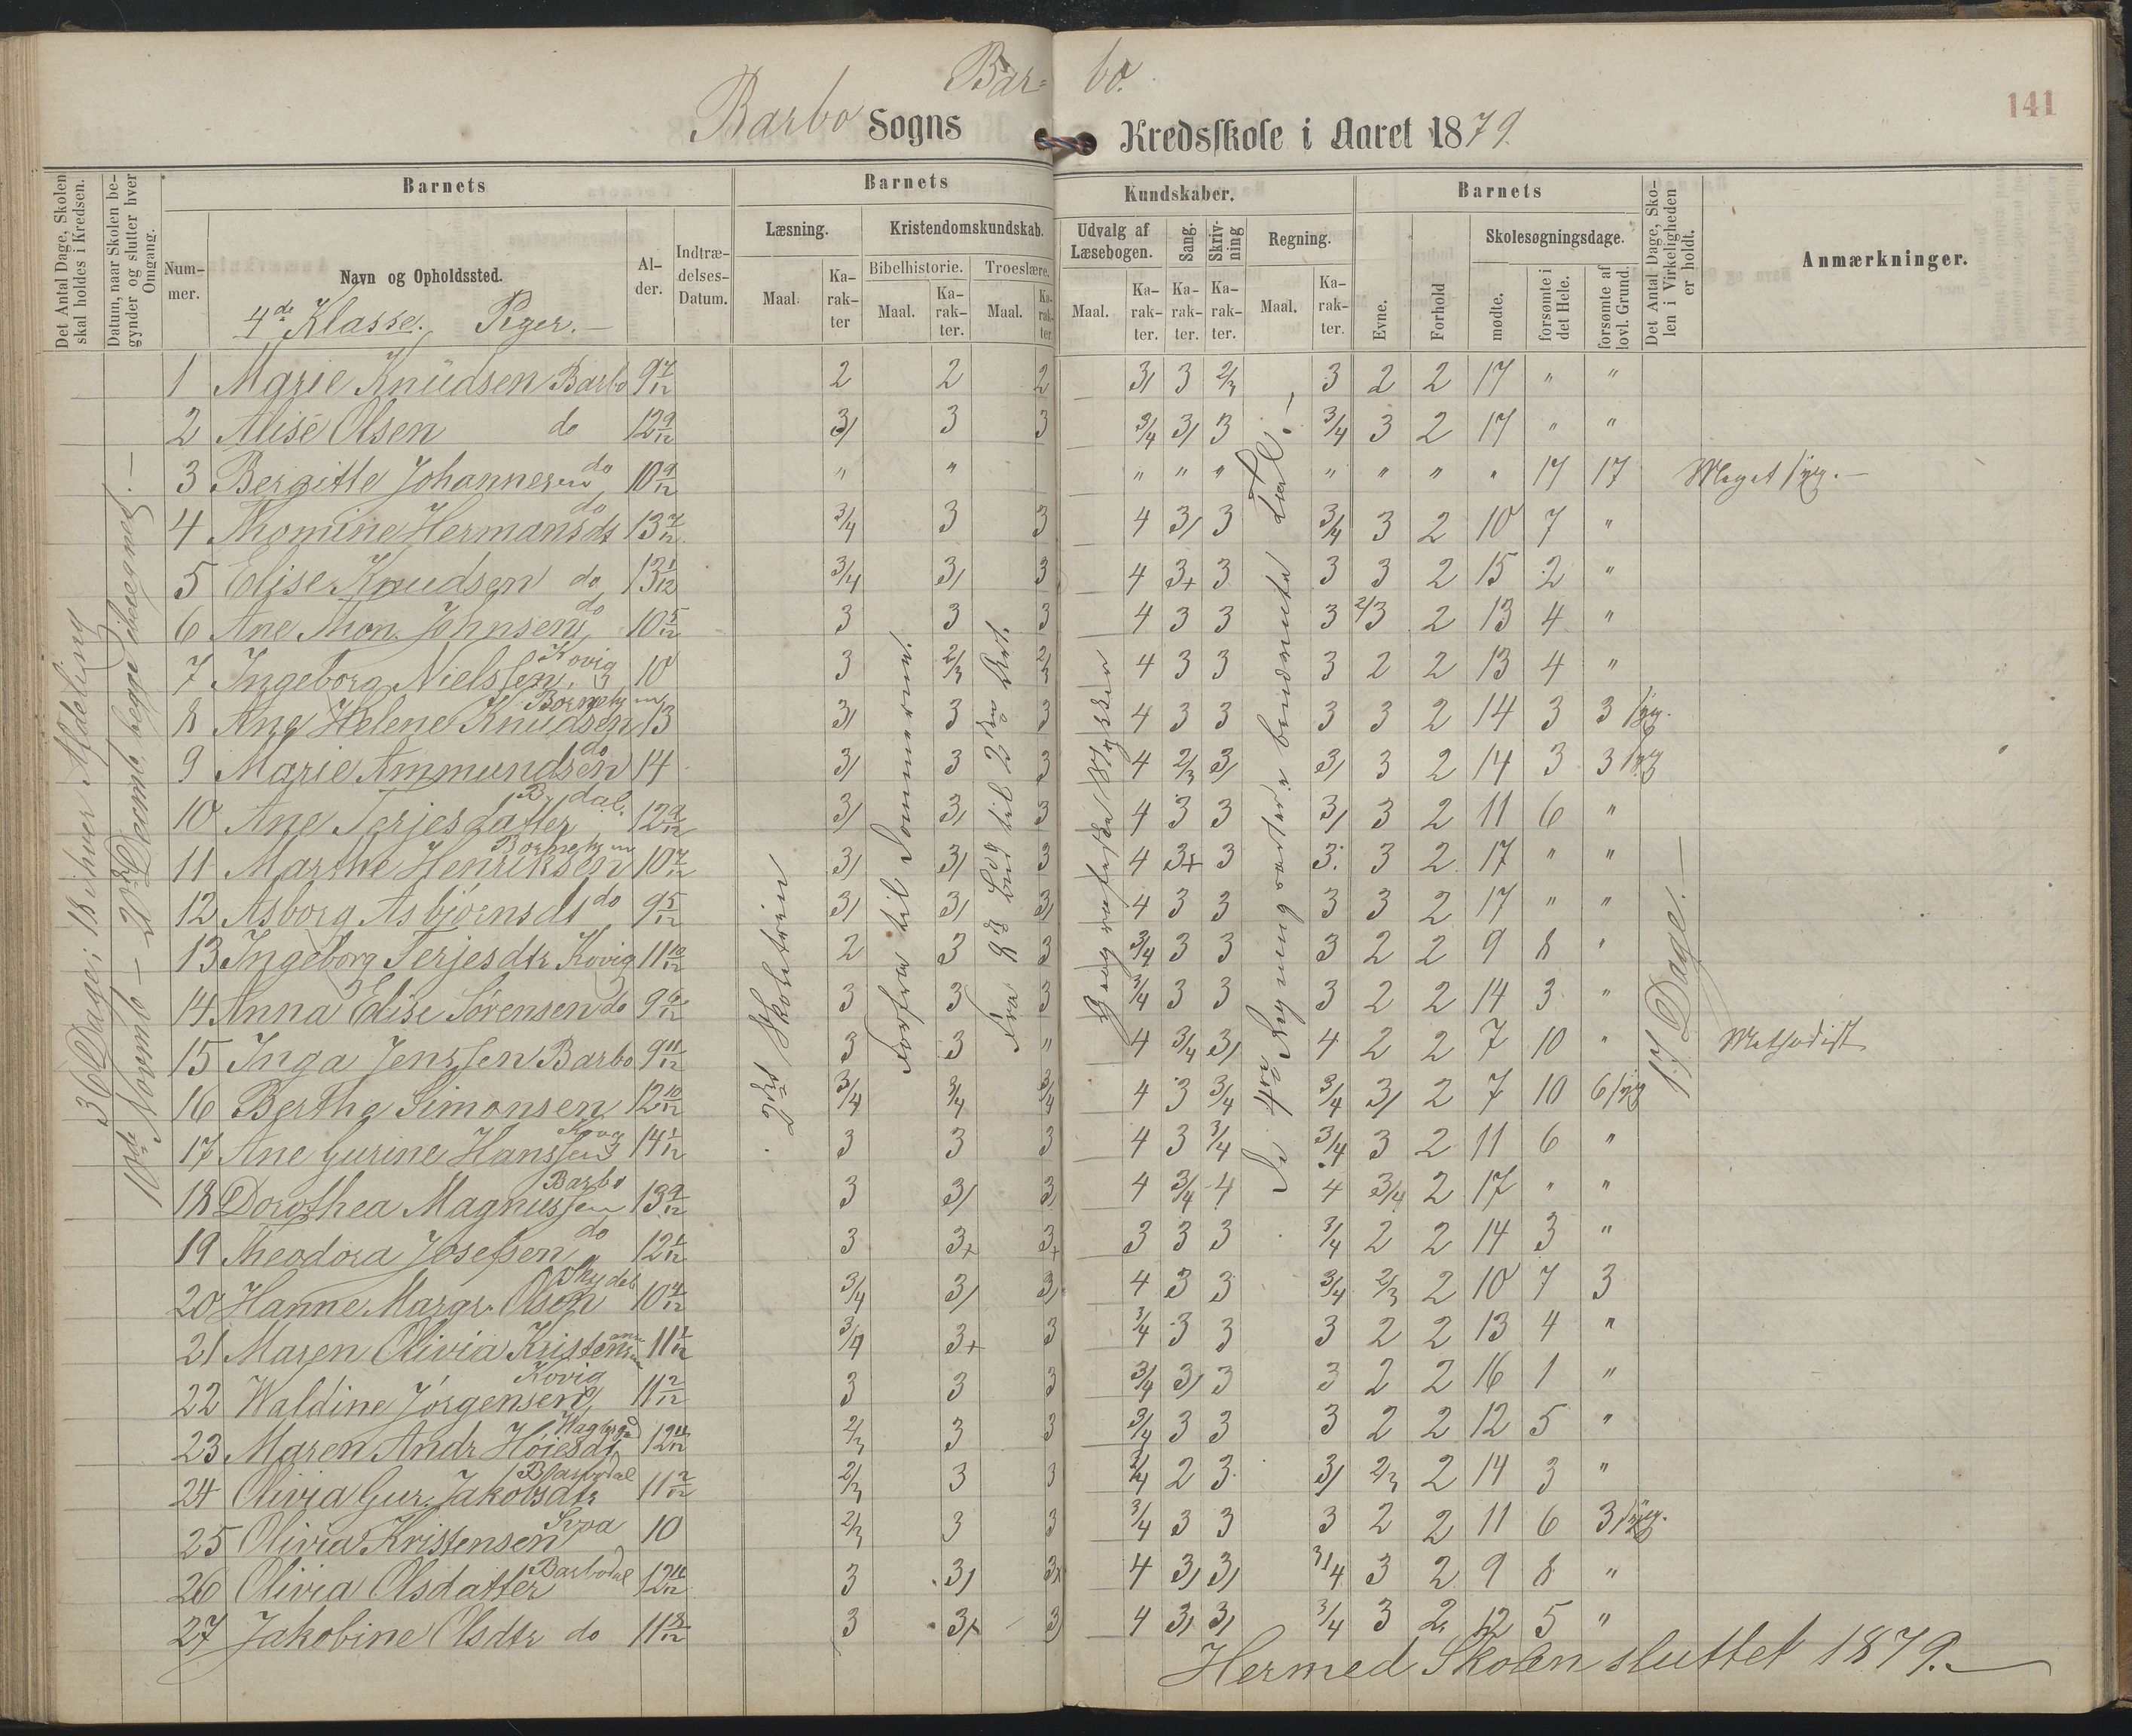 Bar= bo.
141
Barbo Sogns Kredsskole i Aaret 1879.
Det Antal Dage, Skolen skal holdes i Kredsen.
Datum, naar Skolen begynder og slutter hver Omgang.
Barnets
Barnets
Kundskaber.
Barnets
Det Antal Dage, Skolen i Virkeligheden er holdt.
Anmærkninger.
Nummer.
Navn og Opholdssted.
Alder.
Indtrædelses-Datum.
Læsning.
Kristendomskundskab.
Udvalg af Læsebogen.
Sang.
Skrivning
Regning.
Evne.
Forhold
Skolesøgningsdage.
Maal.
Karakter
Bibelhistorie.
Troeslære.
Maal.
Karakter.
Maal.
Karakter.
Maal.
Karakter.
Karakter.
Karakter.
Maal.
Karakter.
mødte.
forsømte i det Hele.
forsømte af lovl. Grund.
4de Klasse. Piger.—
36 Dage i 18 i hver Afdeling
10de Novemb — 20de Decemb, begge iberegnet.—
2det Skoletrin
Forfra til Dommerne.
Fra til 2den Art.
Geografiske Stykker
De 4re Regningsarter i benævnte Tal.—
17 Dage.—
1 Marie Knudsen Barbo 9 7/12 2 2 2 3/ 3 2/3 3 2 2 17 " "
2 Alise Olsen do 12 9/12 3/ 3 3 3/4 3/ 3 3/4 3 2 17 " "
3 Bergitte Johannesen do 10 9/12 " " " " " " " " " 17 17 Meget syg.—
4 Thomine Hermansdt do 13 7/12 3/4 3 3 4 3/ 3 3/4 3 2 10 7 "
5 Elise Knudsen do 13 1/12 3/4 3/ 3 4 3+ 3 3 3 2 15 2 "
6 Ane Thon. Johnsen do 10 5/12 3 3 3 4 3 3 3 2/3 2 13 4 "
7 Ingeborg Nielssen, Kovig 10 3 2/3 2/3 4 3 3 3 2 2 13 4 "
8 Ane Helene Knudsen 13 3/ 3 3 4 3 3 3 3 2 14 3 3 syg.
9 Marie Ammundsen do 14 3/ 3 3 4 2/3 3/ 3/ 3 2 14 3 3 syg
10 Ane Terjesdatter 12 9/12 3/ 3/ 3 4 3 3 3/ 3 2 11 6 "
11 Marthe Henriksen 10 7/12 3/ 3/ 3 4 3+ 3 3. 3 2 17 " "
12 Asborg Asbjørnsdt do 9 5/12 3/ 3/ 3/ 4 3 3 3 3 2 17 " "
13 Ingeborg Terjesdtr Kovig 11 10/12 2 3 3 3/4 3 3 3 2 2 9 8 "
14 Anna Elise Sørensen do 9 6/12 3 3 3 3/4 3 3 3 2 2 14 3 "
15 Inga Jenssen Barbo 9 11/12 3 3 " 4 3/4 3/ 4 2 2 7 10 " Methodist
16 Berthe Simonsen 12 10/12 3/4 3/4 3/4 4 3 3/4 3/4 3/ 2 7 10 6 syg
17 Ane Gurine Hanssen 14 1/12 3 3 3 4 3 3/4 3/4 3 2 11 6 "
18 Dorothea Magnussen Barbo 13 9/12 3 3/ 3/ 4 3/4 4 4 3/4 2 17 " "
19 Theodora Josefsen do 12 1/12 3 3+ 3+ 3 3 3 3/4 2 2 14 3 "
20 Hanne Margr. Olsen 10 4/12 3/4 3/ 3/ 4 3 3 3/4 2/3 2 10 7 3
21 Maren Olivia 11 1/12 3/4 3+ 3 3/4 3 3 3 2 2 13 4 "
22 Waldine Jørgensen Kovig 11 2/12 3 3 3 3/4 3/ 3 3 2 2 16 1 "
23 Maren Andr Høiesdt 12 11/12 2/3 3 3 3/4 3 3 3 2 2 12 5 "
24 Olivia Gur. Jakobsdtr Barbodal 11 2/12 2/3 3 3 3/4 2 3 3/ 2/3 2 14 3 "
25 Olivia Kristensen 10 2/3 3 3 3/4 3 3 3 2 2 11 6 3 syg.
26 Olivia Olsdatter Barbodal 12 11/12 3 3/ 3+ 4 3/ 3/ 3/4 3 2 9 8 "
27 Jakobine Olsdtr do 11 8/12 3 3+ 3/ 4 3/ 3/ 3/4 3 2 12 5 "
Hermed Skolen sluttet 1879.—